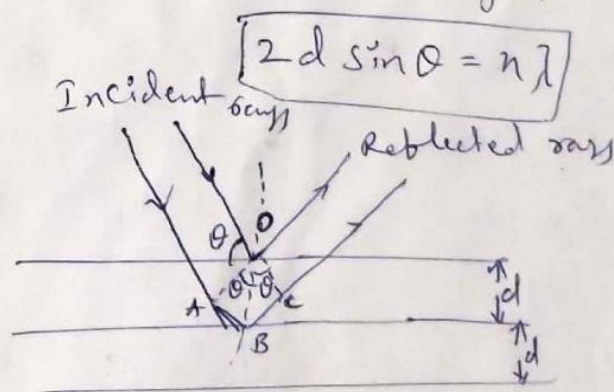 2d sinθ = nλ
Incident rays
Reflected rays
θ O
θ θ
A C
B
d
d